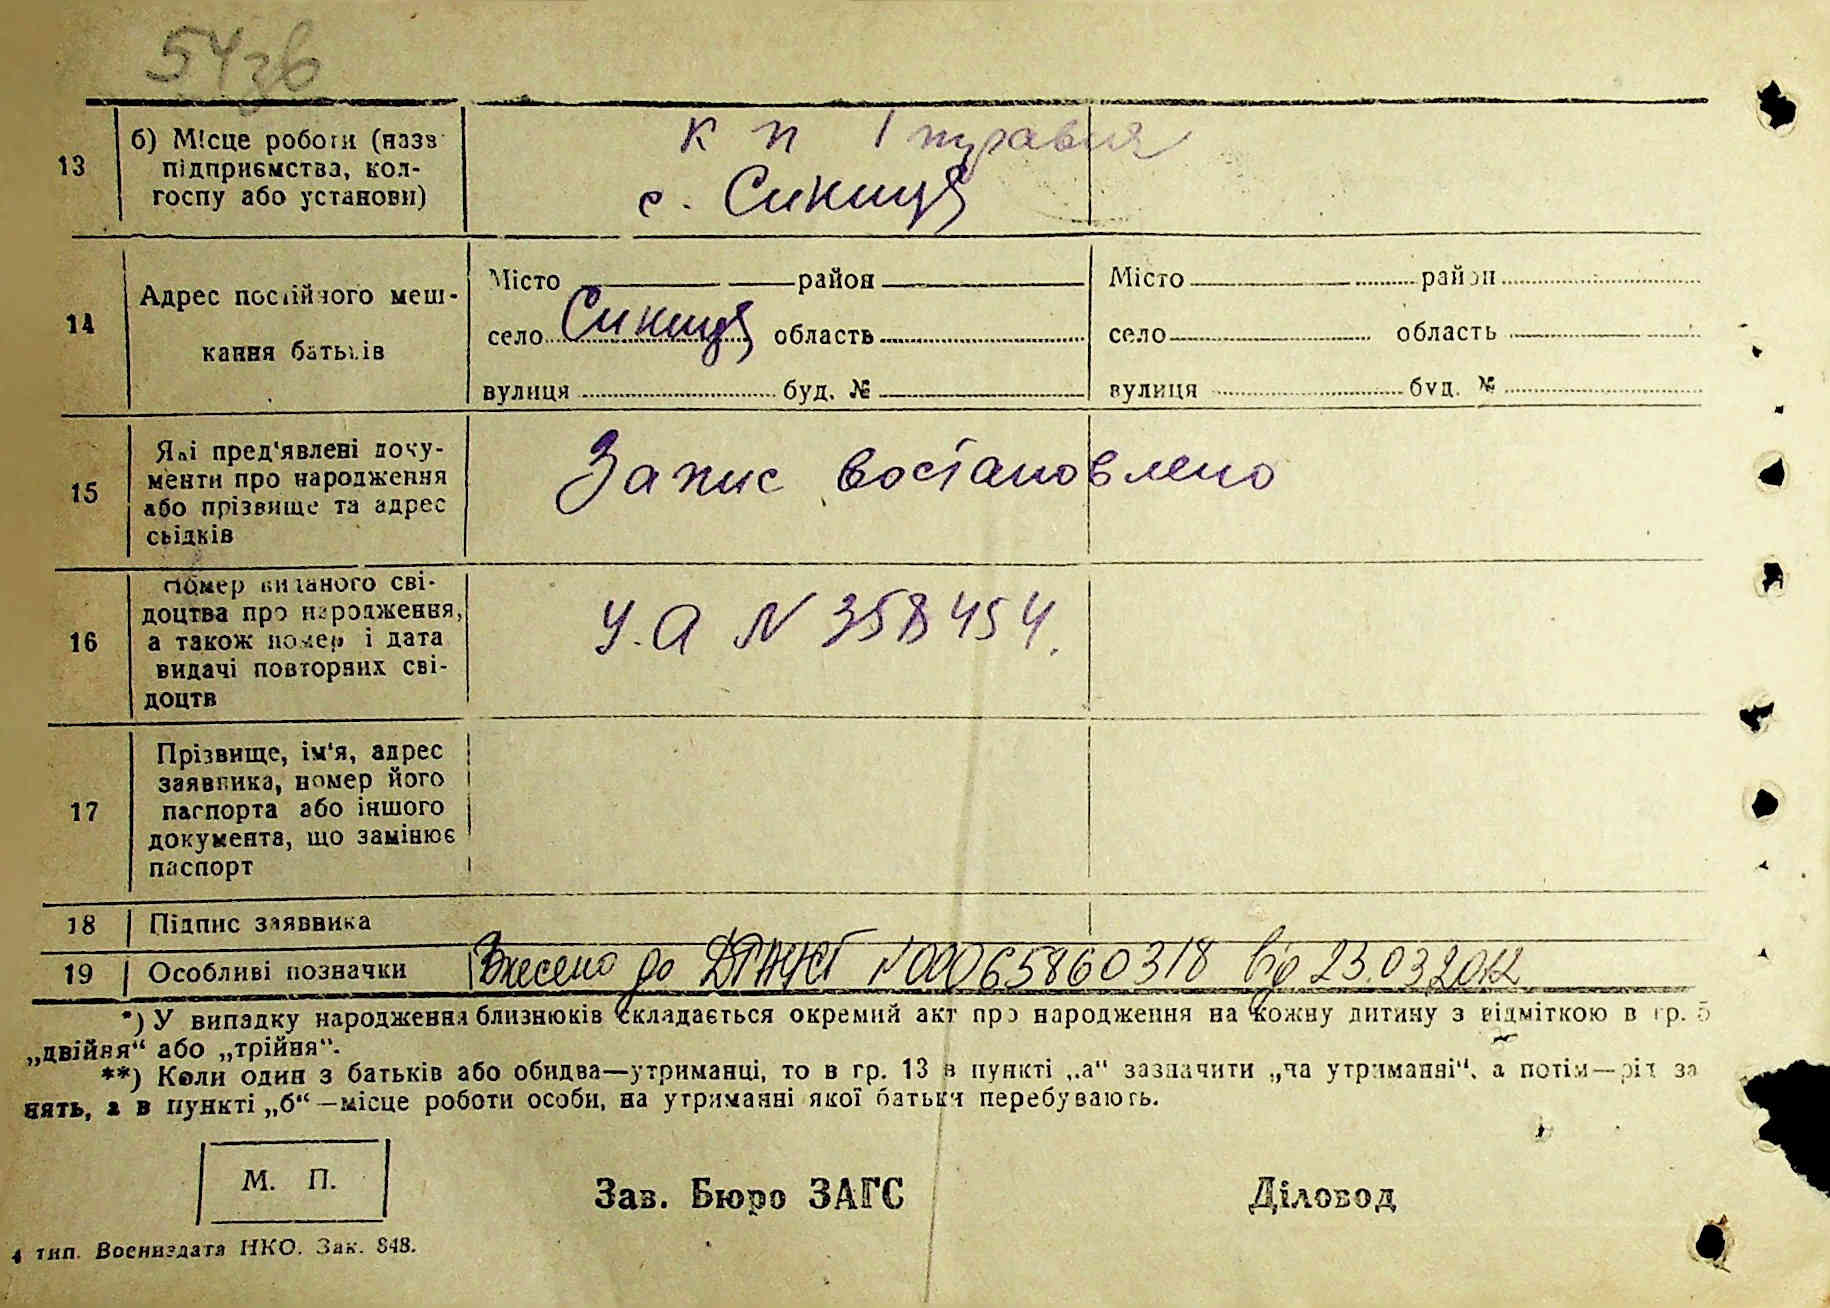 54зв
13
б) Місце роботи (назв
підприємства, кол-
госпу або установи)
к п 1 травня
с. Синиця
14
Адрес постійного меш-
кання батьків
Місто район
село Синиця область
вулиця буд. №
Місто район
село область
вулиця буд. №
15
Які пред'явлені доку-
менти про народження
або прізвище та адрес
свідків
Запис востановлено
16
Номер виданого сві-
доцтва про народження,
а також номер і дата
видачі повторних сві-
доцтв
У.А N 358454.
17
Прізвище, ім'я, адрес
заявника, номер його
паспорта або іншого
документа, що замінює
паспорт
18
Підпис заявника
19
Особливі позначки
Внесено до ДРАЦСГ N00065860318 від 23.03.2012
*) У випадку народження близнюків складається окремий акт про народження на кожну дитину з відміткою в гр. 5
„двійня“ або „трійня“.
**) Коли один з батьків або обидва—утриманці, то в гр. 13 в пункті „а“ зазначити „на утриманні“, а потім—рід за
нять, а в пункті „б“—місце роботи особи, на утриманні якої батьки перебувають.
М. П.
Зав. Бюро ЗАГС
Діловод
4 тип. Воениздата НКО. Зак. 848.